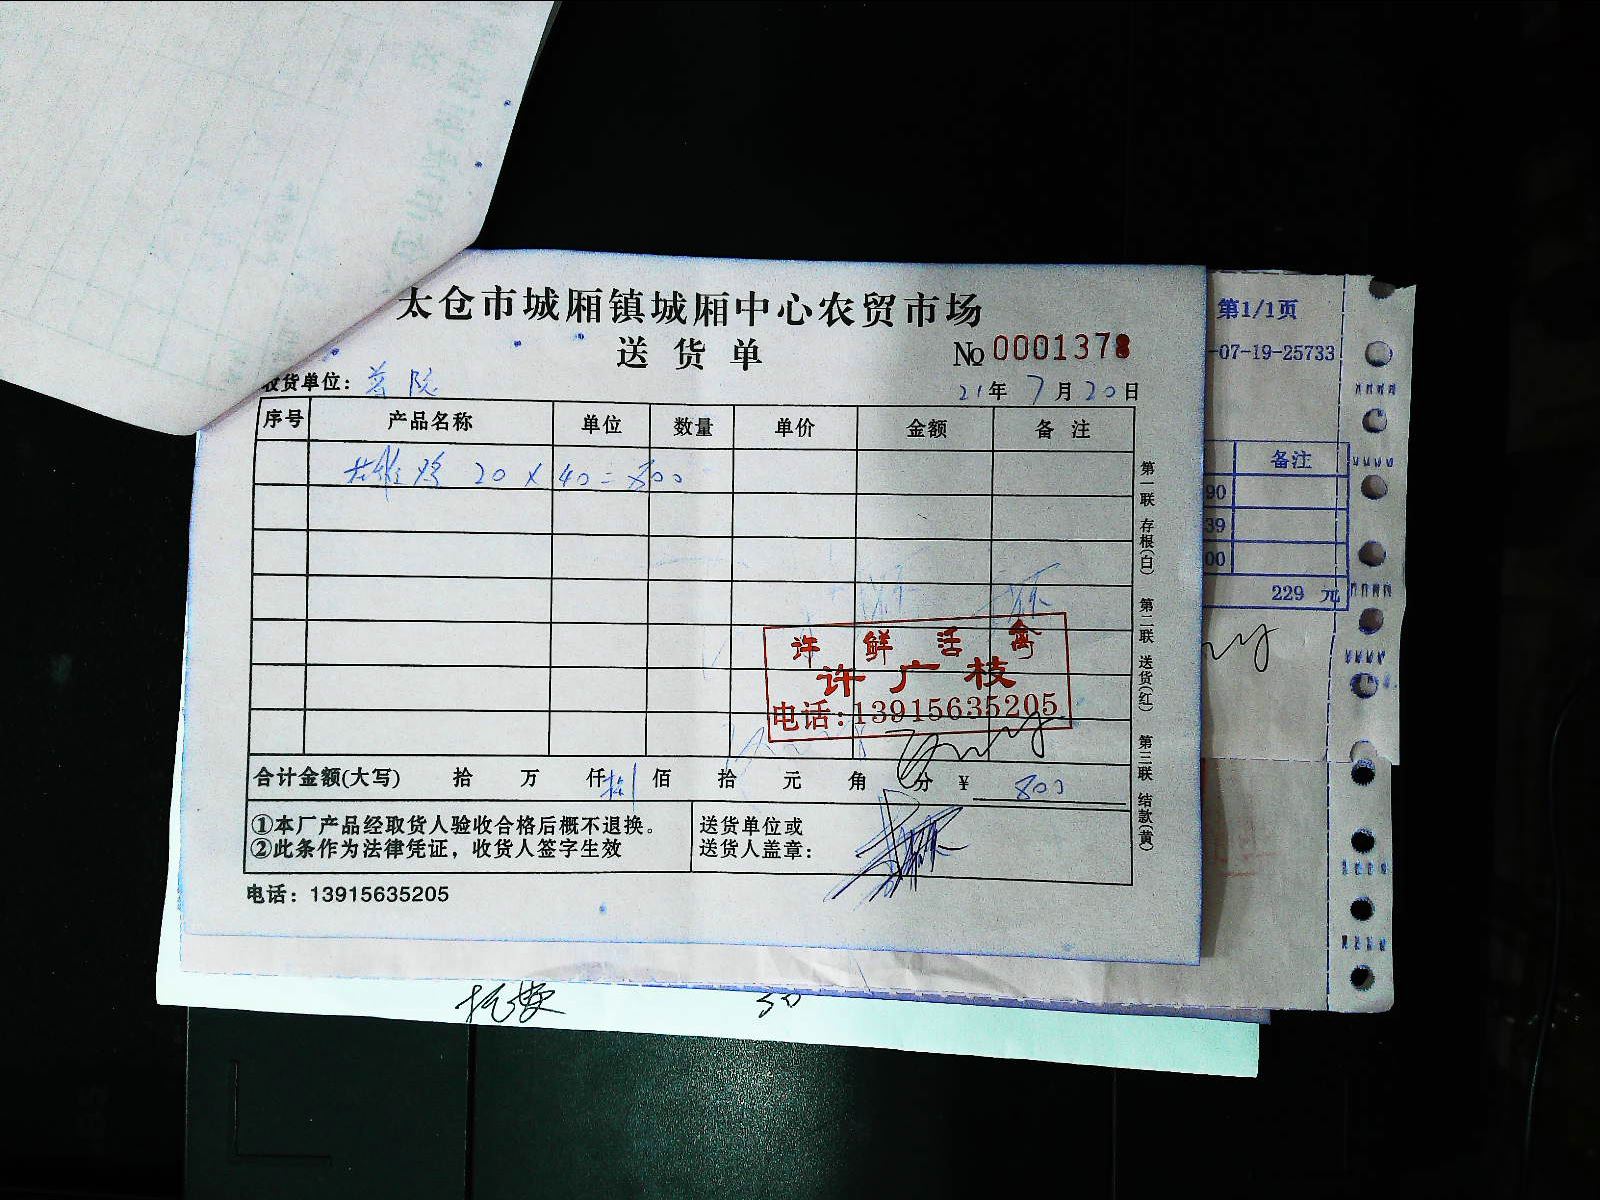 太仓市城厢镇城厢中心农贸市场
送货单
No 0001378
收货单位：
21年7月20日
序号 产品名称 单位 数量 单价 金额 备注
20×40=800
第一联 存根(白) 第二联 送货(红) 第三联 结款(黄)
许鲜活禽
许广枝
电话:13915635205
合计金额(大写) 拾 万 仟 佰 拾 元 角 分 ¥ 800
①本厂产品经取货人验收合格后概不退换。
②此条作为法律凭证，收货人签字生效
送货单位或
送货人盖章：
电话：13915635205
第1/1页
-07-19-25733
备注
90
39
00
229 元
50